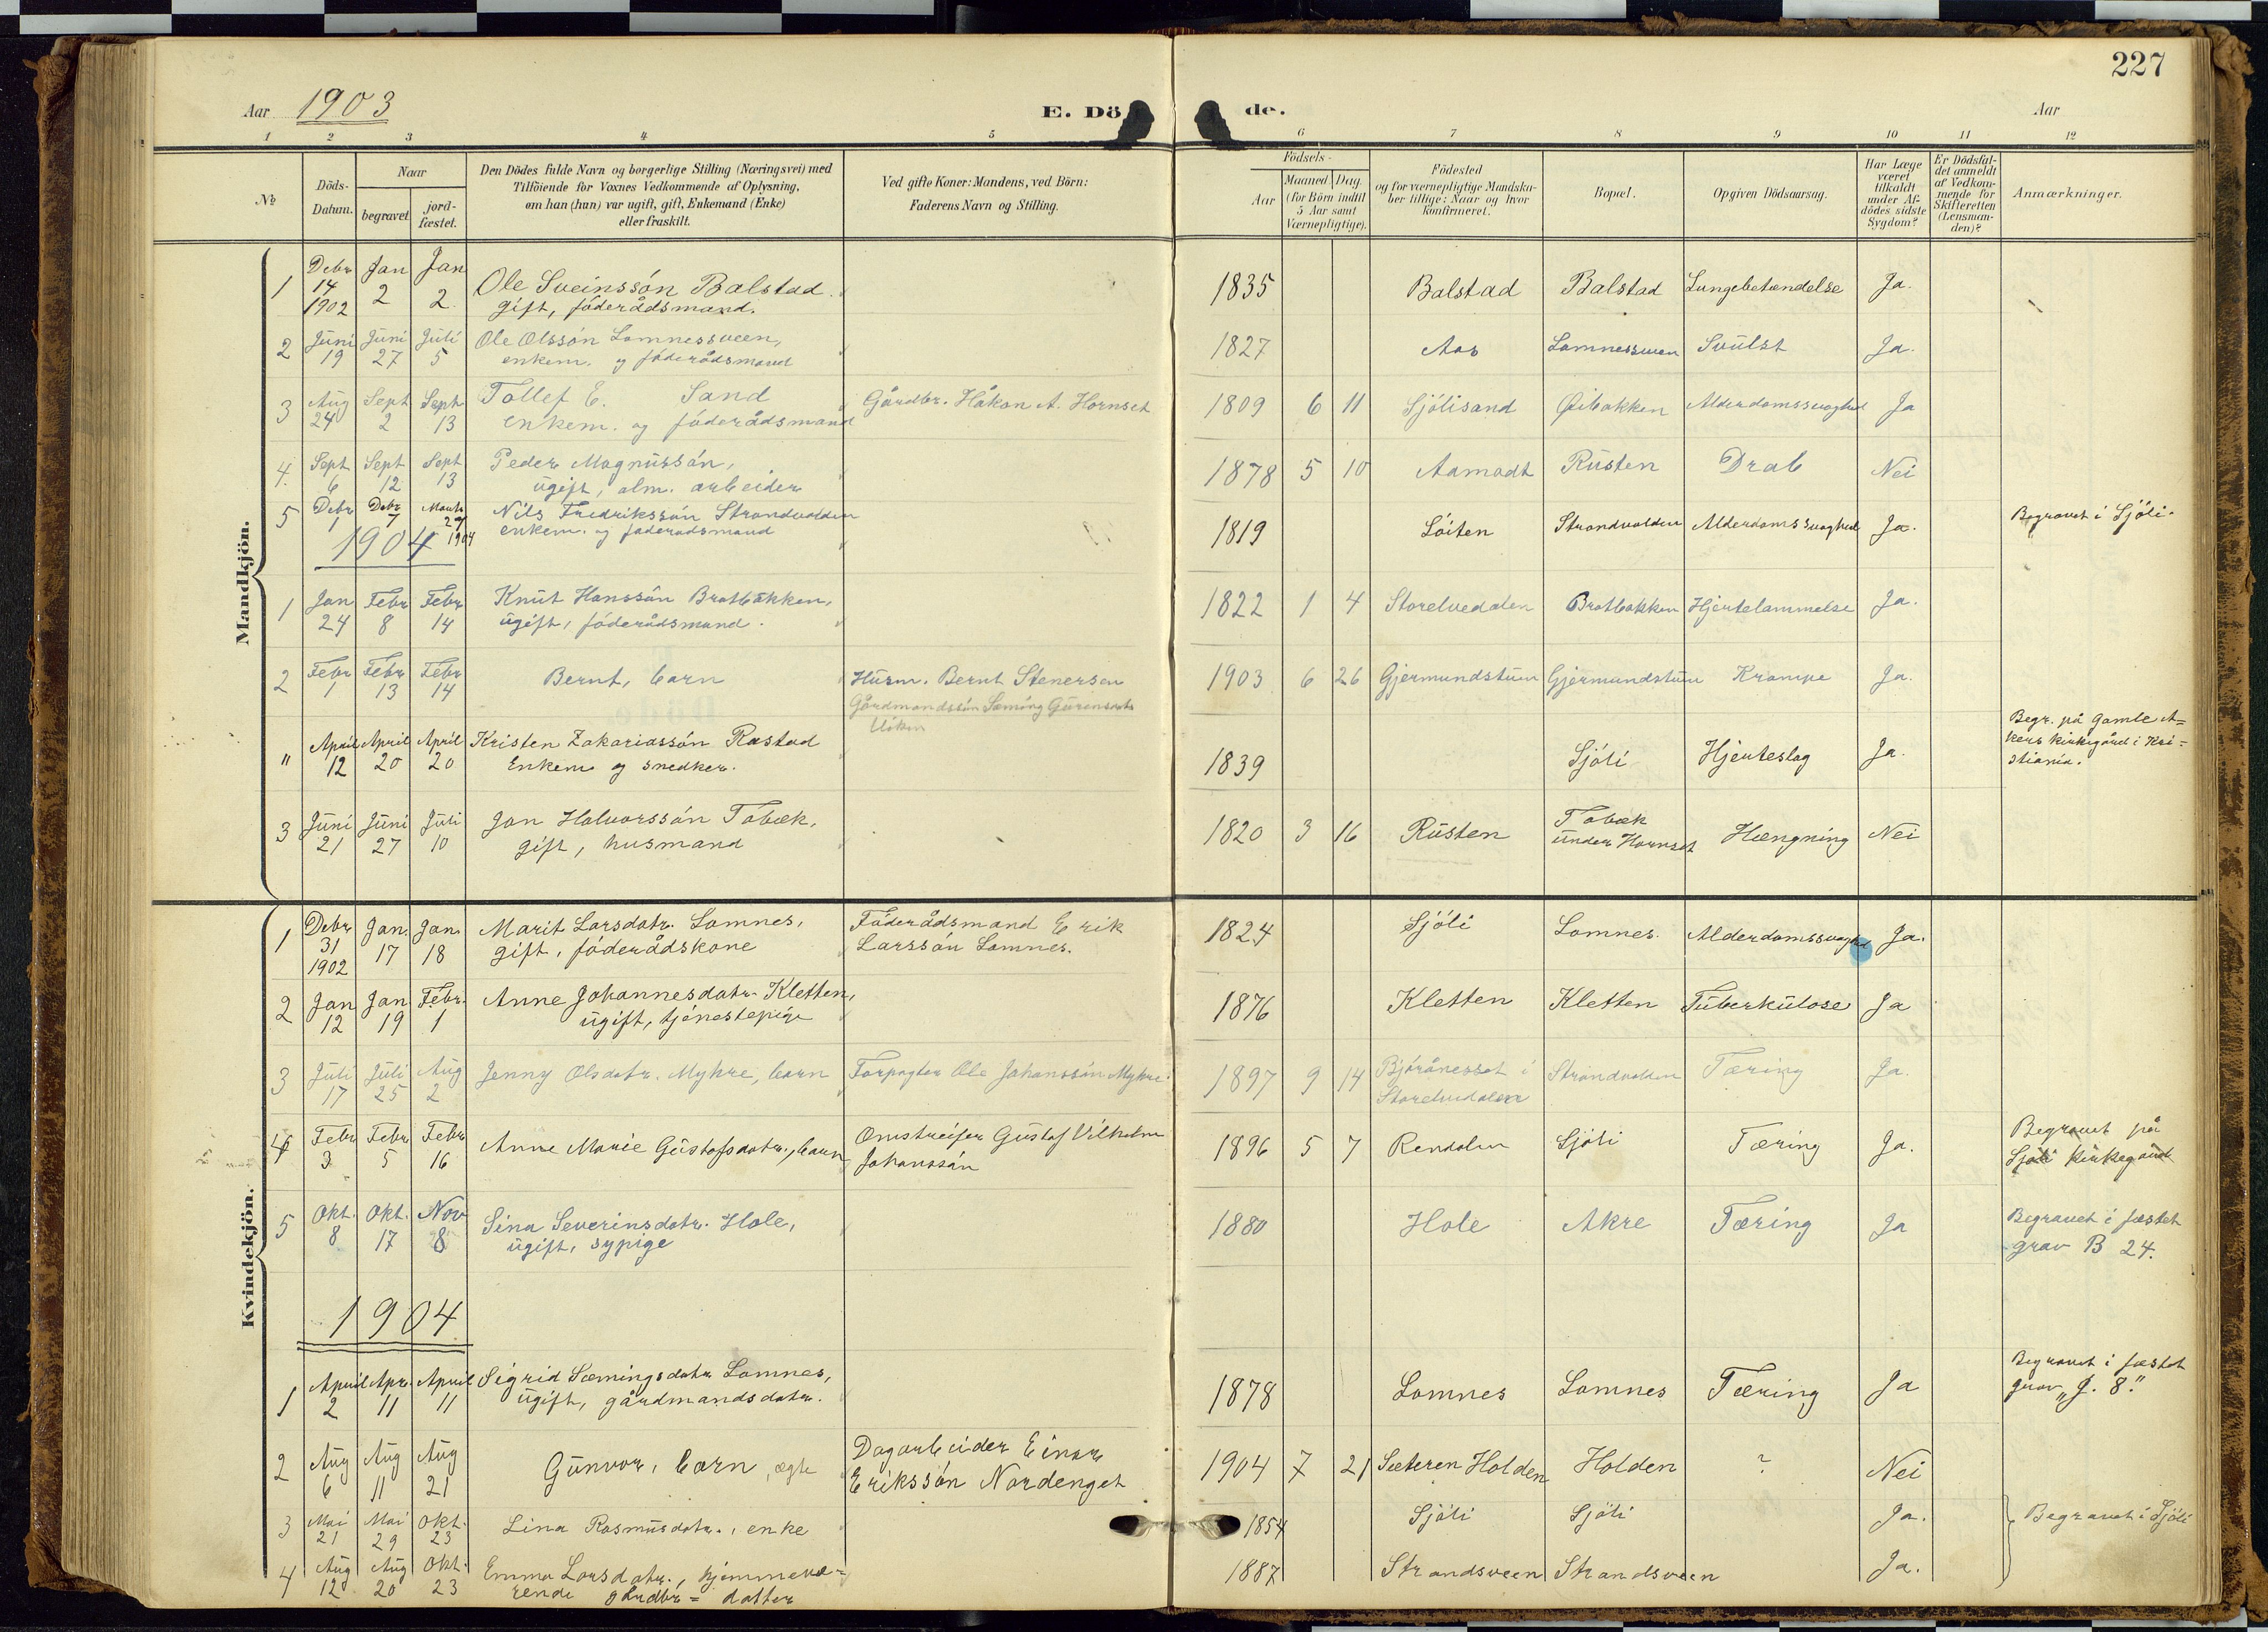 227
Aar 1903 E. Dö de. Aar
1 2 3 4 5 6 7 8 9 10 11 12
№
Döds-Datum.
Naar
begravet
jord-fæstet.
Den Dödes fulde Navn og borgerlige Stilling (Næringsvei) med
Tilföiende for Voxnes Vedkommende af Oplysning,
om han (hun) var ugift, gift, Enkemand (Enke)
eller fraskilt.
Ved gifte Koner: Mandens, ved Börn:
Faderens Navn og Stilling.
Födsels-
Aar
Maaned Dag.
(for Börn indtil
5 Aar samt
Værnepligtige).
Födested
og for værnepligtige Mandska-
ber tillige: Naar og hvor
konfirmeret.
Bopæl.
Opgiven Dödsaarsag.
Har Læge
været
tilkaldt
under Af-
dödes sidste
Sygdom?
Er Dödsfal-
det anmeldt
af Vedkom-
mende for
Skifteretten
(Lensman-
den)?
Anmærkninger.
Mandkjön.
1 Debr 14 1902 Jan 2 Jan 2 Ole Sveinssön Balstad. 1835 Balstad Balstad Lungebetændelse Ja.
gift, föderådsmand.
2 Juni 19 Juni 27 Juli 5 Ole Olssön Lomnessveen, 1827 Aas Lomnessveen Svulst Ja.
enkem. og föderådsmand
3 Aug 24 Sept 2 Sept 13 Tollef E. Sand Gårdbr. Håkon A. Hornset 1809 6 11 Sjölisand Öibakken Alderdomssvaghed Ja
enkem. og föderådsmand
4. Sept 6 Sept 12 Sept 13 Peder Magnussön, 1878 5 10 Aamodt Rusten Drab Nei
ugift, alm. arbeider
5 Debr 1 Debr 7 Marts 27 1904 Nils Fredrikssön Strandvolden 1819 Löiten Strandvolden Alderdomssvaghed Ja. Begravet i Sjöli.
enkem. og föderådsmand
1904
1 Jan 24 Febr 8 Febr 14 Knut Hanssön Bratbakken, 1822 1 4 Storelvedalen Bratbakken Hjertelammelse Ja.
ugift, föderådsmand.
2 Febr 1 Febr 13 Febr 14 Bernt, barn Husm. Bernt Stenersen 1903 6 26 Gjermundstuen Gjermundstuen Krampe Ja.
" April 12 April 20 April 20 Kristen Zakariassön Rastad 1839 Sjöli Hjerteslag Ja.
Enkem og snedker.
Begr. på Gamle A=
kers kirkegård i Kri=
stiania.
3 Juni 21 Juni 27 Juli 10 Jon Halvorssön Töbæk, 1820 3 16 Rusten Töbæk under Hornset Hængning Nei
gift, husmand
Kvindekjön.
1 Debr 31 1902 Jan. 17 Jan. 18 Marit Larsdatr. Lomnes, Föderådsmand Erik 1824 Sjöli Lomnes. Alderdomssvaghed Ja.
gift, föderådskone Larssön Lomnes.
2 Jan 12 Jan 19 Febr. 1 Anne Johannesdatr. Kletten, 1876 Kletten Kletten Tuberkulose Ja
ugift, tjenestepige
3 Juli 17 Juli 25 Aug 2 Jenny Olsdatr. Myhre, barn Forpagter Ole Johanssön Myhre 1897 9 14 Björåneset i Strandvolden Tæring Ja.
Storelvedalen
4 Febr 3 Febr 5 Febr 16 Anne Marie Gustafsdatr., barn Omstreifer Gustaf Vilhelm 1896 5 7 Rendalen Sjöli Tæring Ja. Begravet på
Johanssön Sjöli kirkegård
5 Okt. 8 Okt. 17 Nov 8 Sina Severinsdatr. Hole, 1880 Hole Akre Tæring Ja Begravet i fæstet
ugift, sypige grav B 24.
1904
1 April 2 Apr. 11 April 11 Sigrid Sæmingsdatr Lomnes, 1878 Lomnes Lomnes Tæring Ja Begravet i fæstet
ugift, gårdmandsdatr. grav „J. 8."
2 Aug 6 Aug 11 Aug 21 Gunvor, barn, ægte Dagarbeider Einar 1904 7 21 Sæteren Holden Holden ? Nei
Erikssön Nordenget
3 Mai 21 Mai 29 Okt. 23 Lina Rasmusdatr., enke 1854 Sjöli Sjöli Ja. Begravet i Sjöli
4 Aug 12 Aug 20 Okt. 23 Emma Larsdatr., hjemmevæ= 1887 Strandsveen Strandsveen Ja.
rende gårdbr= datter